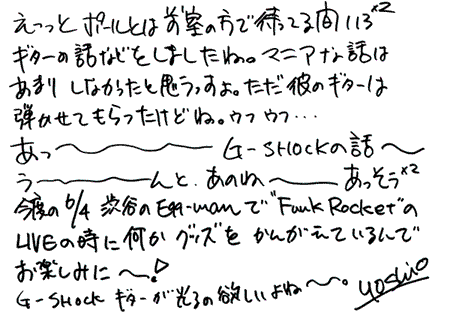 えーっと ポールとは お墓の方で待ってる間いろ×2
ギターの話などをしましたね。マニアな話は
あまりしなかったと思うっすよ。ただ彼のギターは
弾かせてもらったけどね。ウフ ウフ…
あっ〜〜〜 G-SHOCKの話〜
う〜〜〜んと、あのね〜〜 あっそう×2
今度の6/4 渋谷のEgg-manで"Funk Rocket"の
LIVEの時に何かグッズをかんがえているんで
お楽しみに〜!
G-SHOCK ギターが光るの欲しいよね〜。 yoshio